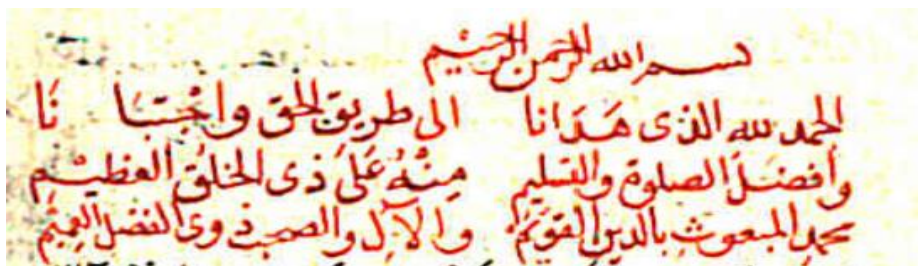 بسم الله الرحمن الرحيم
الحمد لله الذى هَدَانا الى طريق الحق واجْتبَانَا
وافضَلُ الصلوة والتسليم مِنْهُ عَلَى ذى الخلُق العَظيْم
محمد المبعوث بالدين القَوِيْم والآل والصحب ذوى الفضل العَمِيْم